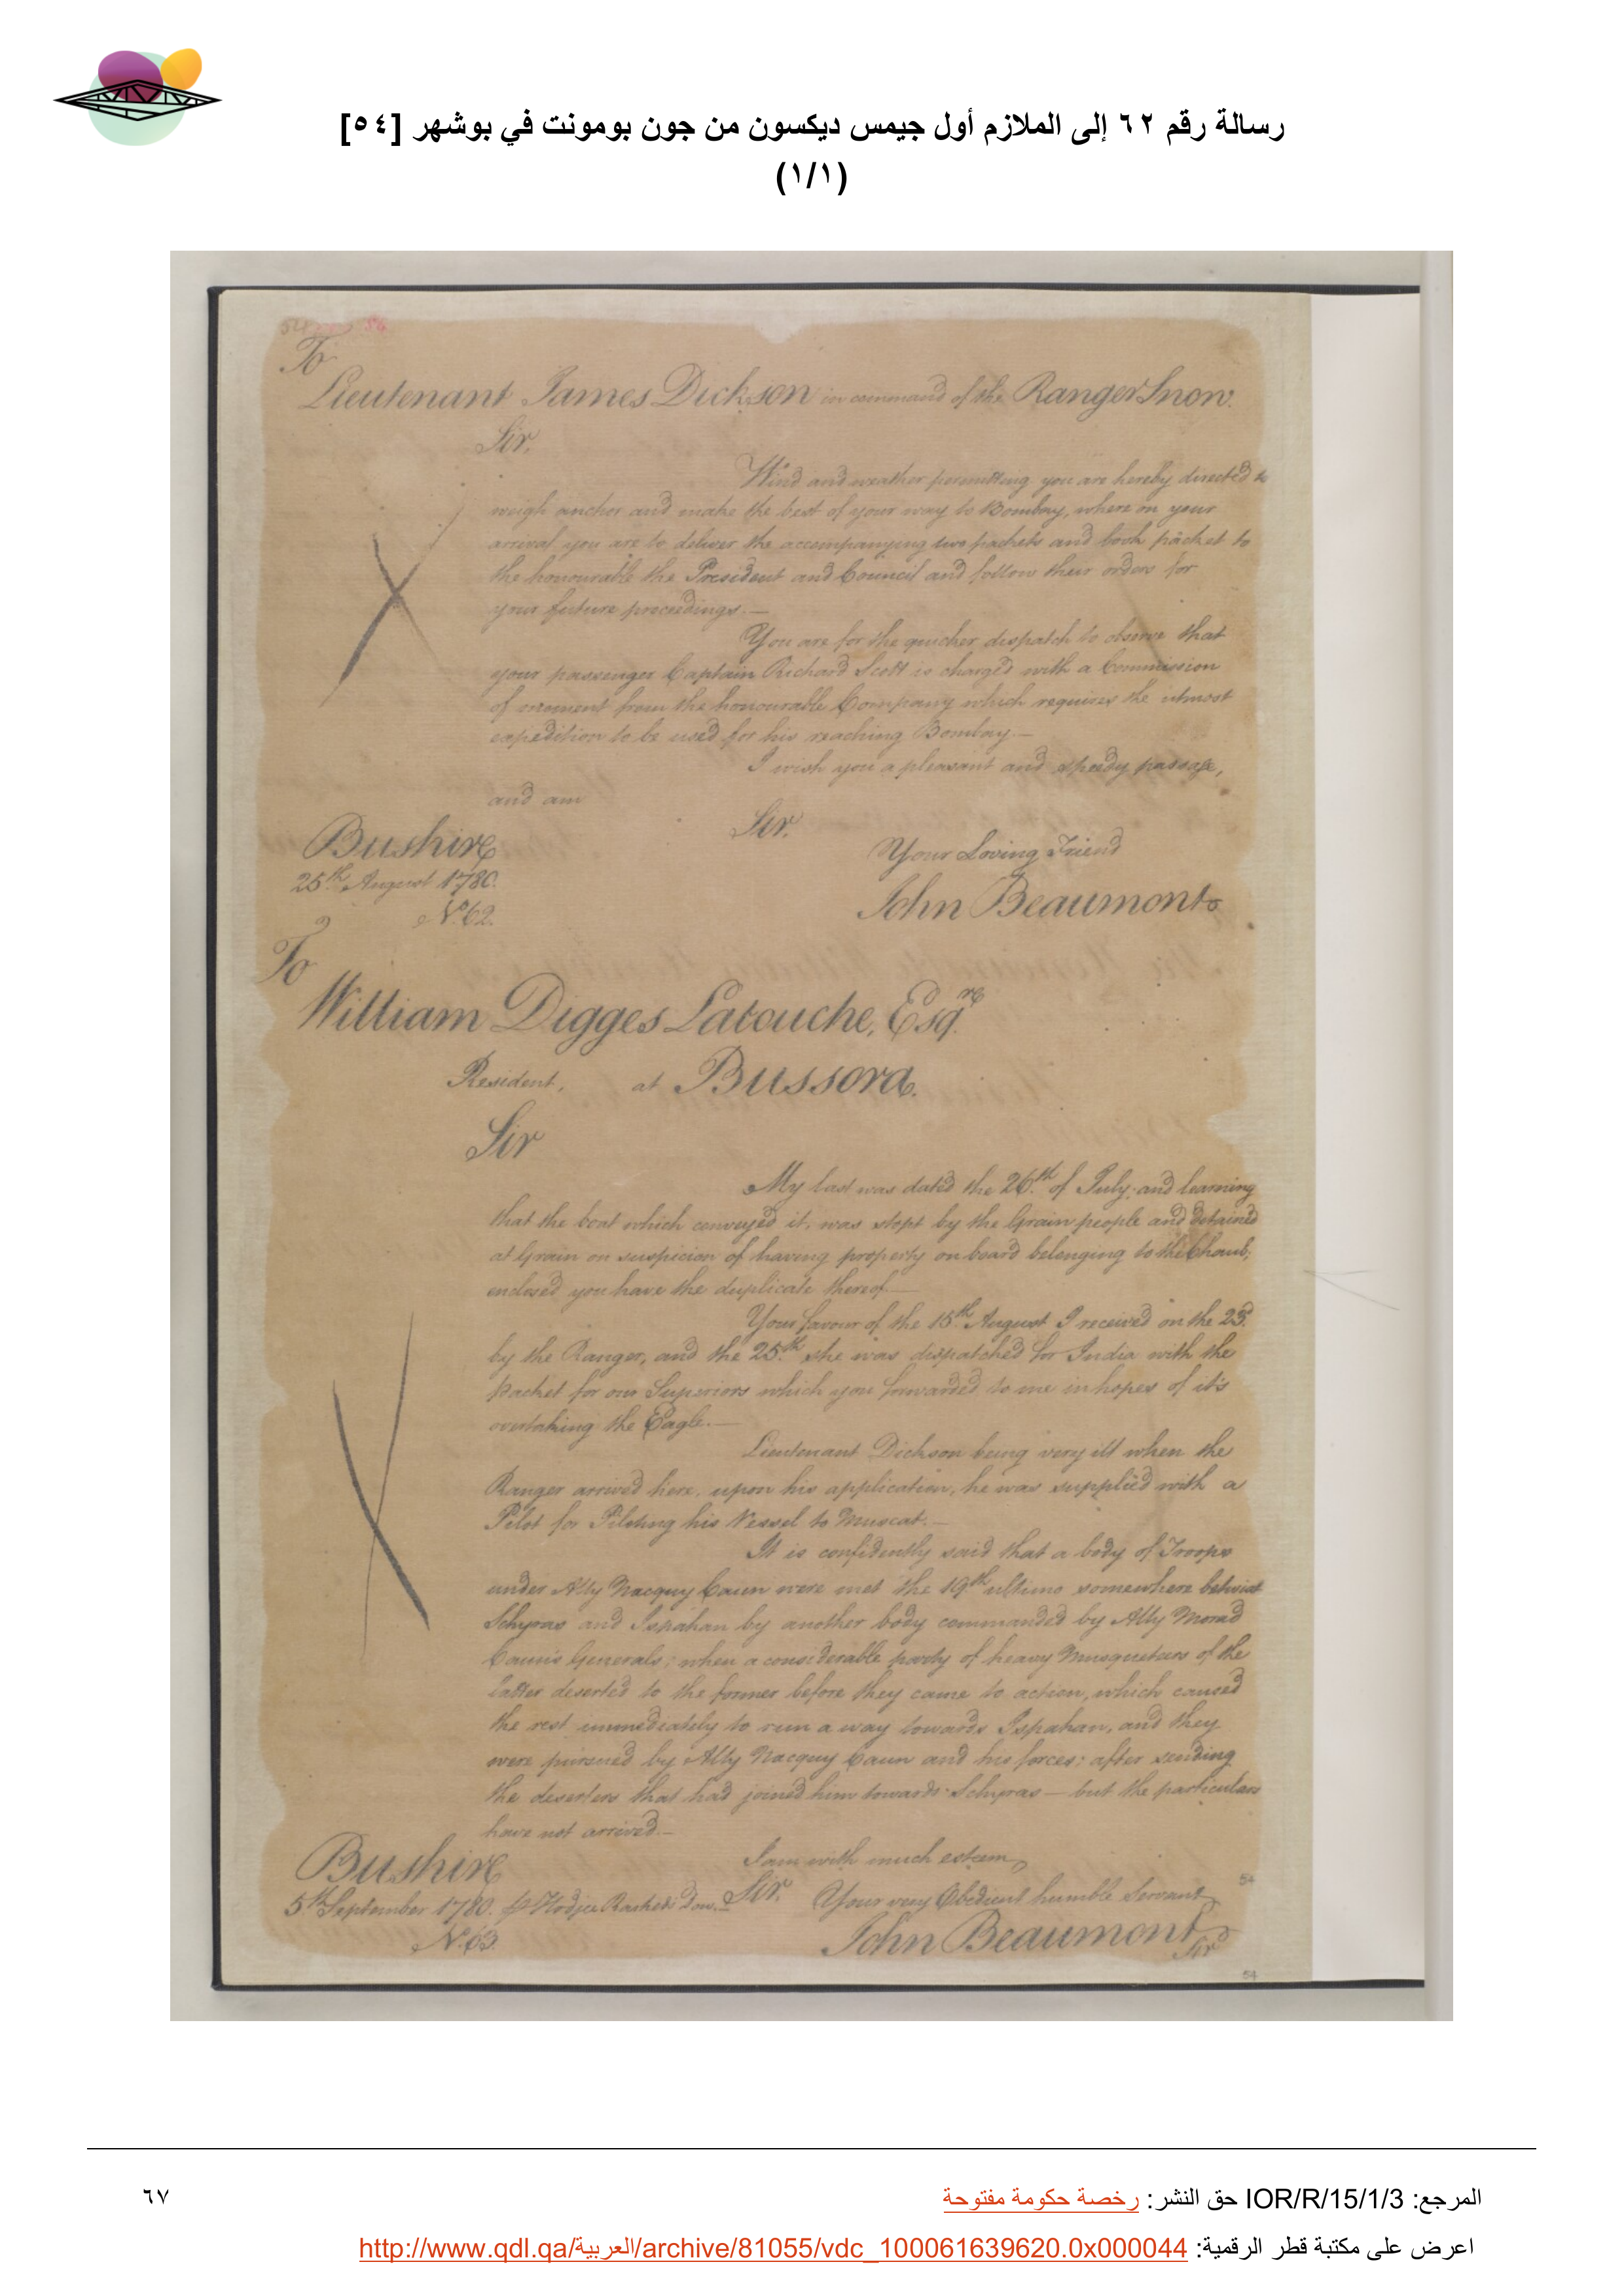 رسالة رقم ٦٢ إلى الملازم أول جيمس ديكسون من جون بومونت في بوشهر [٥٤]
(١/١)
54
To
Lieutenant James Dickson in command of the Ranger Snow.
Sir,
Wind and weather permitting you are hereby directed to
weigh anchor and make the best of your way to Bombay, where on your
arrival you are to deliver the accompanying two packets and book packet to
the honourable the President and Council and follow their orders for
your future proceedings.—
You are for the quicker dispatch to observe that
your passenger Captain Richard Scott is charged with a Commission
of moment from the honourable Company which requires the utmost
expedition to be used for his reaching Bombay.—
I wish you a pleasant and speedy passage,
and am
Sir,
Bushire
Your Loving Friend
25th August 1780.
John Beaumont
No. 62.
To
William Digges Latouche, Esqre
Resident, at Bussora.
Sir
My last was dated the 26th of July; and learning
that the boat which conveyed it, was stopt by the Grain people and detained
at Grain on suspicion of having property on board belonging to the Chaub;
enclosed you have the duplicate thereof.—
Your favour of the 15th August I received on the 23d
by the Ranger, and the 25th she was dispatched for India with the
Packet for our Superiors which you forwarded to me in hopes of it's
overtaking the Eagle.—
Lieutenant Dickson being very ill when the
Ranger arrived here, upon his application, he was supplied with a
Pilot for Piloting his Vessel to Muscat.—
It is confidently said that a body of Troops
under Ally Nacquy Caun were met the 19th ultimo somewhere betwixt
Schyras and Ispahan by another body commanded by Ally Morad
Caun's Generals; when a considerable party of heavy Musqueteers of the
latter deserted to the former before they came to action, which caused
the rest immediately to run a way towards Ispahan, and they
were pursued by Ally Nacquy Caun and his forces; after sending
the deserters that had joined him towards Schyras — but the particulars
have not arrived.—
I am with much esteem,
Bushire
Sir,
Your very Obedient humble Servant
5th September 1780. Hodjee Rashed's Dow.
John Beaumont
No. 63
Sir
54
54
المرجع: IOR/R/15/1/3 حق النشر: رخصة حكومة مفتوحة
٦٧
اعرض على مكتبة قطر الرقمية: http://www.qdl.qa/العربية/archive/81055/vdc_100061639620.0x000044